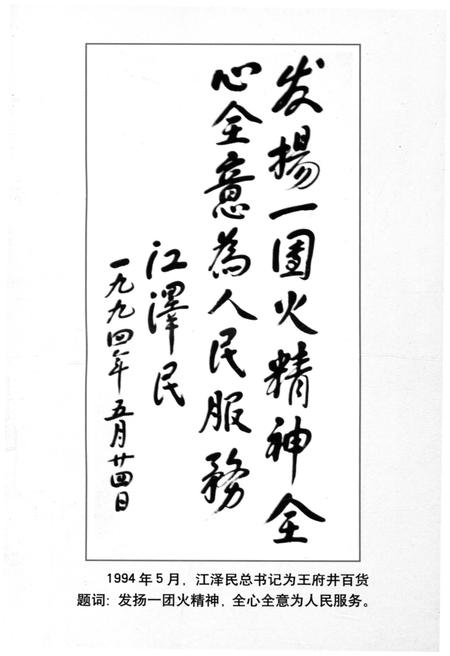 发揚一團火精神全
心全意為人民服務
江澤民
一九九四年五月廿四日
1994年5月，江泽民总书记为王府井百货
题词：发扬一团火精神，全心全意为人民服务。